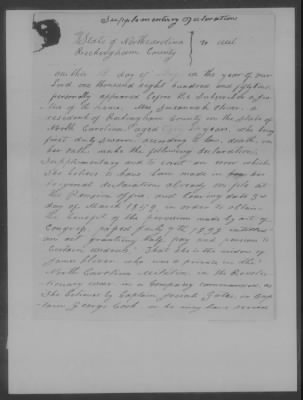 Supplementary Declaration
State of North Carolina } to wit
Rockingham County }
On this day of in the year of our
Lord one thousand eight hundred and fifty
personally appeared before the Subscriber a Jus-
tice of the peace, Mrs Susannah Oliver, a
resident of Rockingham County in the State of
North Carolina aged years, who being
first duly sworn according to law, doth, on
her oath, make the following declaration,
Supplementary and to correct an error which
She believes to have been made in her
original declaration already on file at
the Pension office, and bearing date 3rd
day of March 1849, in order to obtain
the benefit of the provision made by act of
Congress, passed July 7th 1838 entitled
an act granting half pay and pensions to
certain widows: That She is the widow of
James Oliver who was a private in the
North Carolina Militia in the Revolu-
tionary war in a Company commanded, as
She believes by Captain Joseph Gates, or Cap-
tain George Cook or he may have served